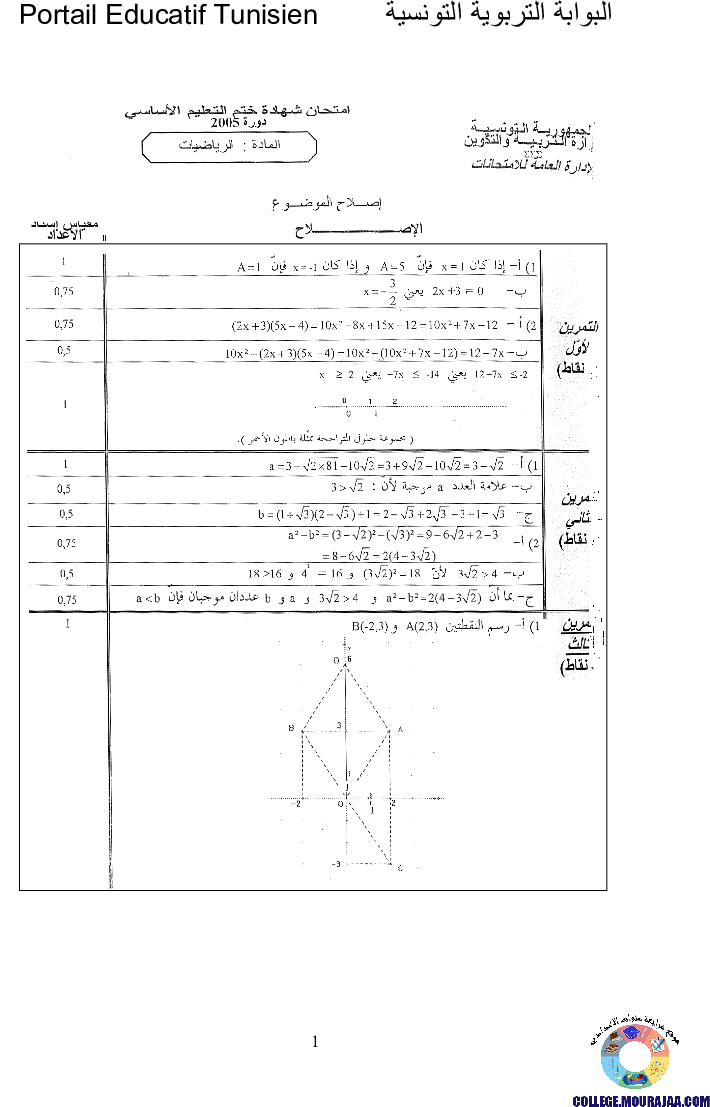 Portail Educatif Tunisien البوابة التربوية التونسية
امتحان شهادة ختم التعليم الأساسي
دورة 2005
المادة : الرياضيات
لجمهورية التونسية
زارة التربية والتكوين
لإدارة العامة للامتحانات
إصلاح الموضوع
مقياس إسناد الأعداد
الإصلاح
التمرين
لأوّل
نقاط)
1) أ- إذا كان x = 1 فإنّ A = 5 و إذا كان x = -1 فإنّ A = 1
1
ب- 2x + 3 = 0 يعني x = -3/2
0,75
2) أ- (2x+3)(5x-4) = 10x² - 8x + 15x - 12 = 10x² + 7x - 12
0,75
ب- 10x² - (2x+3)(5x-4) = 10x² - (10x² + 7x - 12) = 12 - 7x
0,5
12 - 7x ≤ -2 يعني -7x ≤ -14 يعني x ≥ 2
0 1 2
0 1
1
( مجموعة حلول المتراجحة ممثلة باللون الأحمر ).
مرين
ثاني
نقاط)
1) أ- a = 3 + √2×81 - 10√2 = 3 + 9√2 - 10√2 = 3 - √2
1
ب- علامة العدد a موجبة لأنّ : 3 > √2
0,5
ج- b = (1 + √3)(2 - √3) + 1 = 2 - √3 + 2√3 - 3 + 1 = √3
0,5
2) أ- a² - b² = (3 - √2)² - (√3)² = 9 - 6√2 + 2 - 3
= 8 - 6√2 = 2(4 - 3√2)
0,75
ب- 3√2 > 4 لأنّ (3√2)² = 18 و 4² = 16 و 18 > 16
0,5
ج- بما أن a² - b² = 2(4 - 3√2) و 3√2 > 4 و a و b عددان موجبان فإنّ a < b
0,75
مرين
ثالث
نقاط)
1) أ- رسم النقطتين A(2,3) و B(-2,3)
1
D 6
B 3 A
-2 0 2
-3 C
1
COLLEGE.MOURAJAA.COM